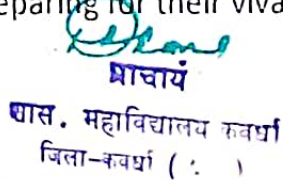 eparing for their viva
प्राचार्य
शास. महाविद्यालय कवर्धा
जिला-कवर्धा ( . )